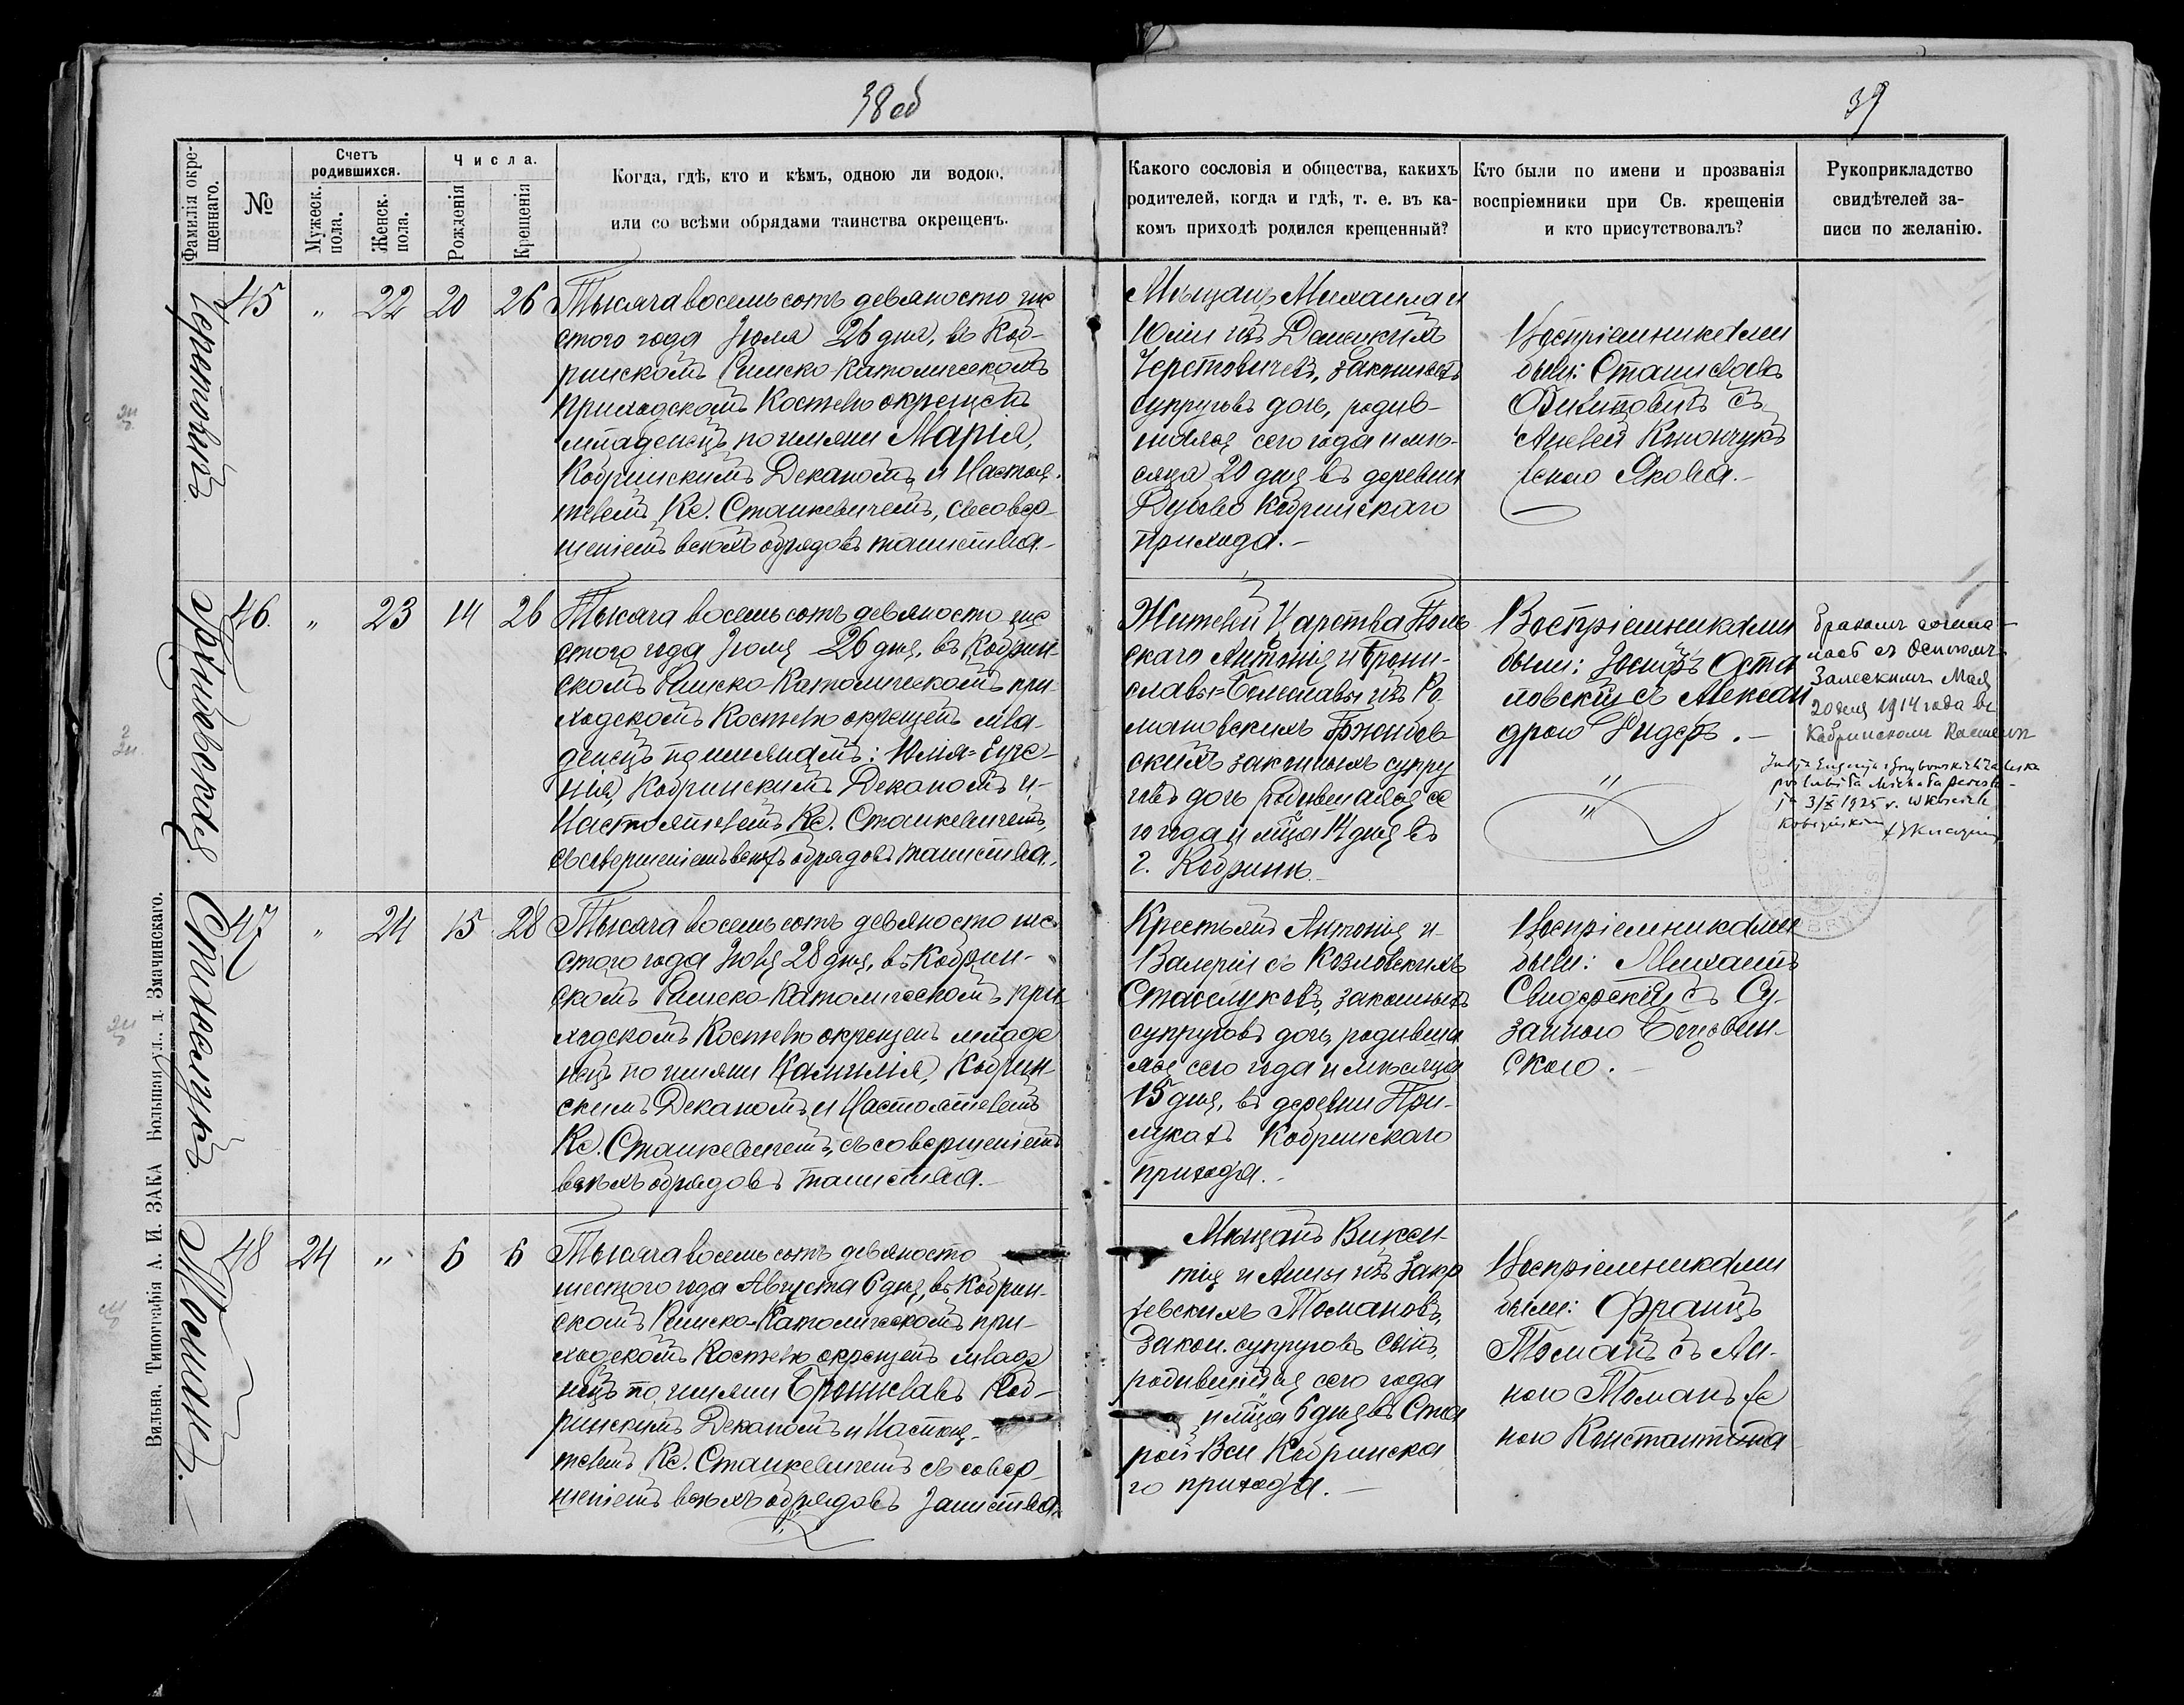 38 об
39
Фамилія окре-
щеннаго.
№
Счетъ
родившихся.
Мужеск.
пола.
Женск.
пола.
Числа.
Рожденія
Крещенія
Когда, гдѣ, кто и кѣмъ, одною ли водою,
или со всѣми обрядами таинства окрещенъ.
Какого сословія и общества, какихъ
родителей, когда и гдѣ, т. е. въ ка-
комъ приходѣ родился крещенный?
Кто были по имени и прозванія
воспріемники при Св. крещеніи
и кто присутствовалъ?
Рукоприкладство
свидѣтелей за-
писи по желанію.
45 " 22 20 26
Тысяча восемь сотъ девяносто ше
стого года Іюля 26 дня, въ Коб-
ринскомъ Римско-Католическомъ
приходскомъ Костелѣ окрещенъ
младенецъ по имяни Марія,
Кобринскимъ Деканомъ и Настоя-
телемъ Кс. Станкевичемъ, съ совер-
шеніемъ всѣхъ обрядовъ таинства.-
Мѣщанъ Михаила и
Юліи изъ
законныхъ
супруговъ дочь, родив-
шаяся сего года и мѣ-
сяца 20 дня въ деревни
Кобринскаго
прихода.-
Воспріемниками
были: Станиславъ
съ
женою Якова.-
46. " 23 14 26
Тысяча восемь сотъ девяносто ше
стого года Іюля 26 дня, въ Кобрин-
скомъ Римско-Католическомъ при-
ходскомъ Костелѣ окрещенъ мла-
денецъ по имянамъ: Юлія-Евге-
нія, Кобринскимъ Деканомъ и
Настоятелемъ Кс. Станкевичемъ,
съ совершеніемъ всѣхъ обрядовъ таинства.
Жителей Царства Поль
скаго Антонія и Брони-
славы-Болеславы изъ Ро
мановскихъ Гржибов
скихъ законныхъ супру
говъ дочь родившаяся се
го года и мѣсяца 14 дня въ
г. Кобринѣ.
Воспріемниками
были: Іосифъ Оста
ловскій съ Алексан
дрою Ридеръ.-
Бракомъ сочета-
лась съ Осипомъ
Залескимъ Мая
20 дня 1914 года въ
Кобринскомъ Костелѣ
poślubiła Michała
3/X 1925 r. w Kościele
Kobryńskim
Стаселукъ
47 " 24 15 28
Тысяча восемь сотъ девяносто ше
стого года Іюля 28 дня, въ Кобрин-
скомъ Римско-Католическомъ при
ходскомъ Костелѣ окрещенъ младе
нецъ по имяни Камилія, Кобрин-
скимъ Деканомъ и Настоятелемъ
Кс. Станкевичемъ, съ совершеніемъ
всѣхъ обрядовъ таинства.-
Крестьянъ Антонія и
Валеріи съ Козловскихъ
Стаселуковъ, законныхъ
супруговъ дочь, родивша
яся сего года и мѣсяца
15 дня, въ деревни При-
лукахъ Кобринскаго
прихода.-
Воспріемниками
были: Михаилъ
Свидерскій съ Су-
занною
скою.-
Томанъ.
48 24 " 6 6
Тысяча восемь сотъ девяносто
шестого года Августа 6 дня, въ Кобрин-
скомъ Римско-Католическомъ при-
ходскомъ Костелѣ окрещенъ младе
нецъ по имяни Брониславъ Коб-
ринскимъ Деканомъ и Настоя-
телемъ Кс. Станкевичемъ съ совер-
шеніемъ всѣхъ обрядовъ таинства.
Мѣщанъ Викен-
тія и Анны изъ Закр
жевскихъ Томановъ,
Закон. супруговъ сынъ,
родившійся сего года
и мѣсяца 6 дня въ Ста
рой Вси Кобринска
го прихода.-
Воспріемниками
были: Францъ
Томанъ съ Ан-
ною Томанъ же
ною Константина
Вильна, Типографія А. И. ЗАКА Большая ул., д. Змачинскаго.